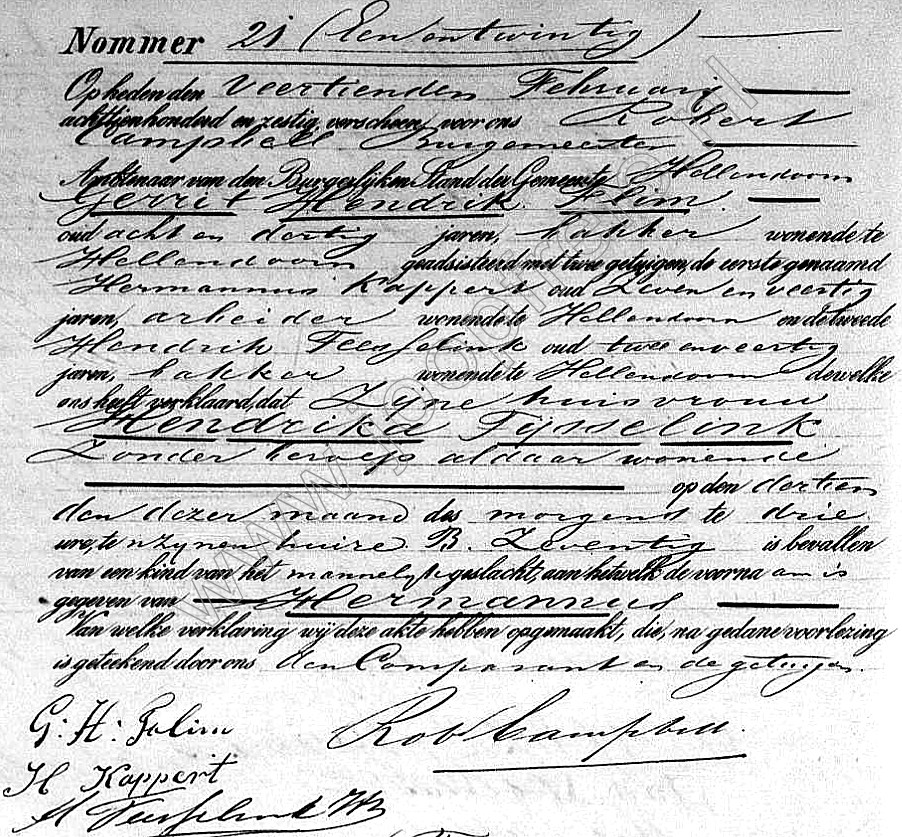 Nommer 21 (Een ontwintig)
Op heden den Veertienden Februarij
achttienhonderd en zestig, verscheen voor ons Robert
Campbell Burgemeester
Ambtenaar van den Burgerlijken Stand der Gemeente Hellendoorn
Gerrit Hendrik Flim
oud acht en dertig jaren, bakker wonende te
Hellendoorn geadsisteerd met twee getuigen, de eerste genaamd
Hermannus Kappert oud Zeven en veertig
jaren, arbeider wonende te Hellendoorn en de tweede
Hendrik oud twee en veertig
jaren, bakker wonende te Hellendoorn dewelke
ons heeft verklaard, dat Zijne huisvrouw
Hendrika Tijsselink
Zonder beroep aldaar wonende
op den dertien
den dezer maand des morgens te drie
ure, te nzynen huize B. Zeventig is bevallen
van een kind van het mannelyk geslacht, aan hetwelk de voorna am is
gegeven van Hermannus
Van welke verklaring wij deze akte hebben opgemaakt, die, na gedane voorlezing
is geteekend door ons den Comparant en de getuigen.
G: H: Rob Campbell
H Kappert
H